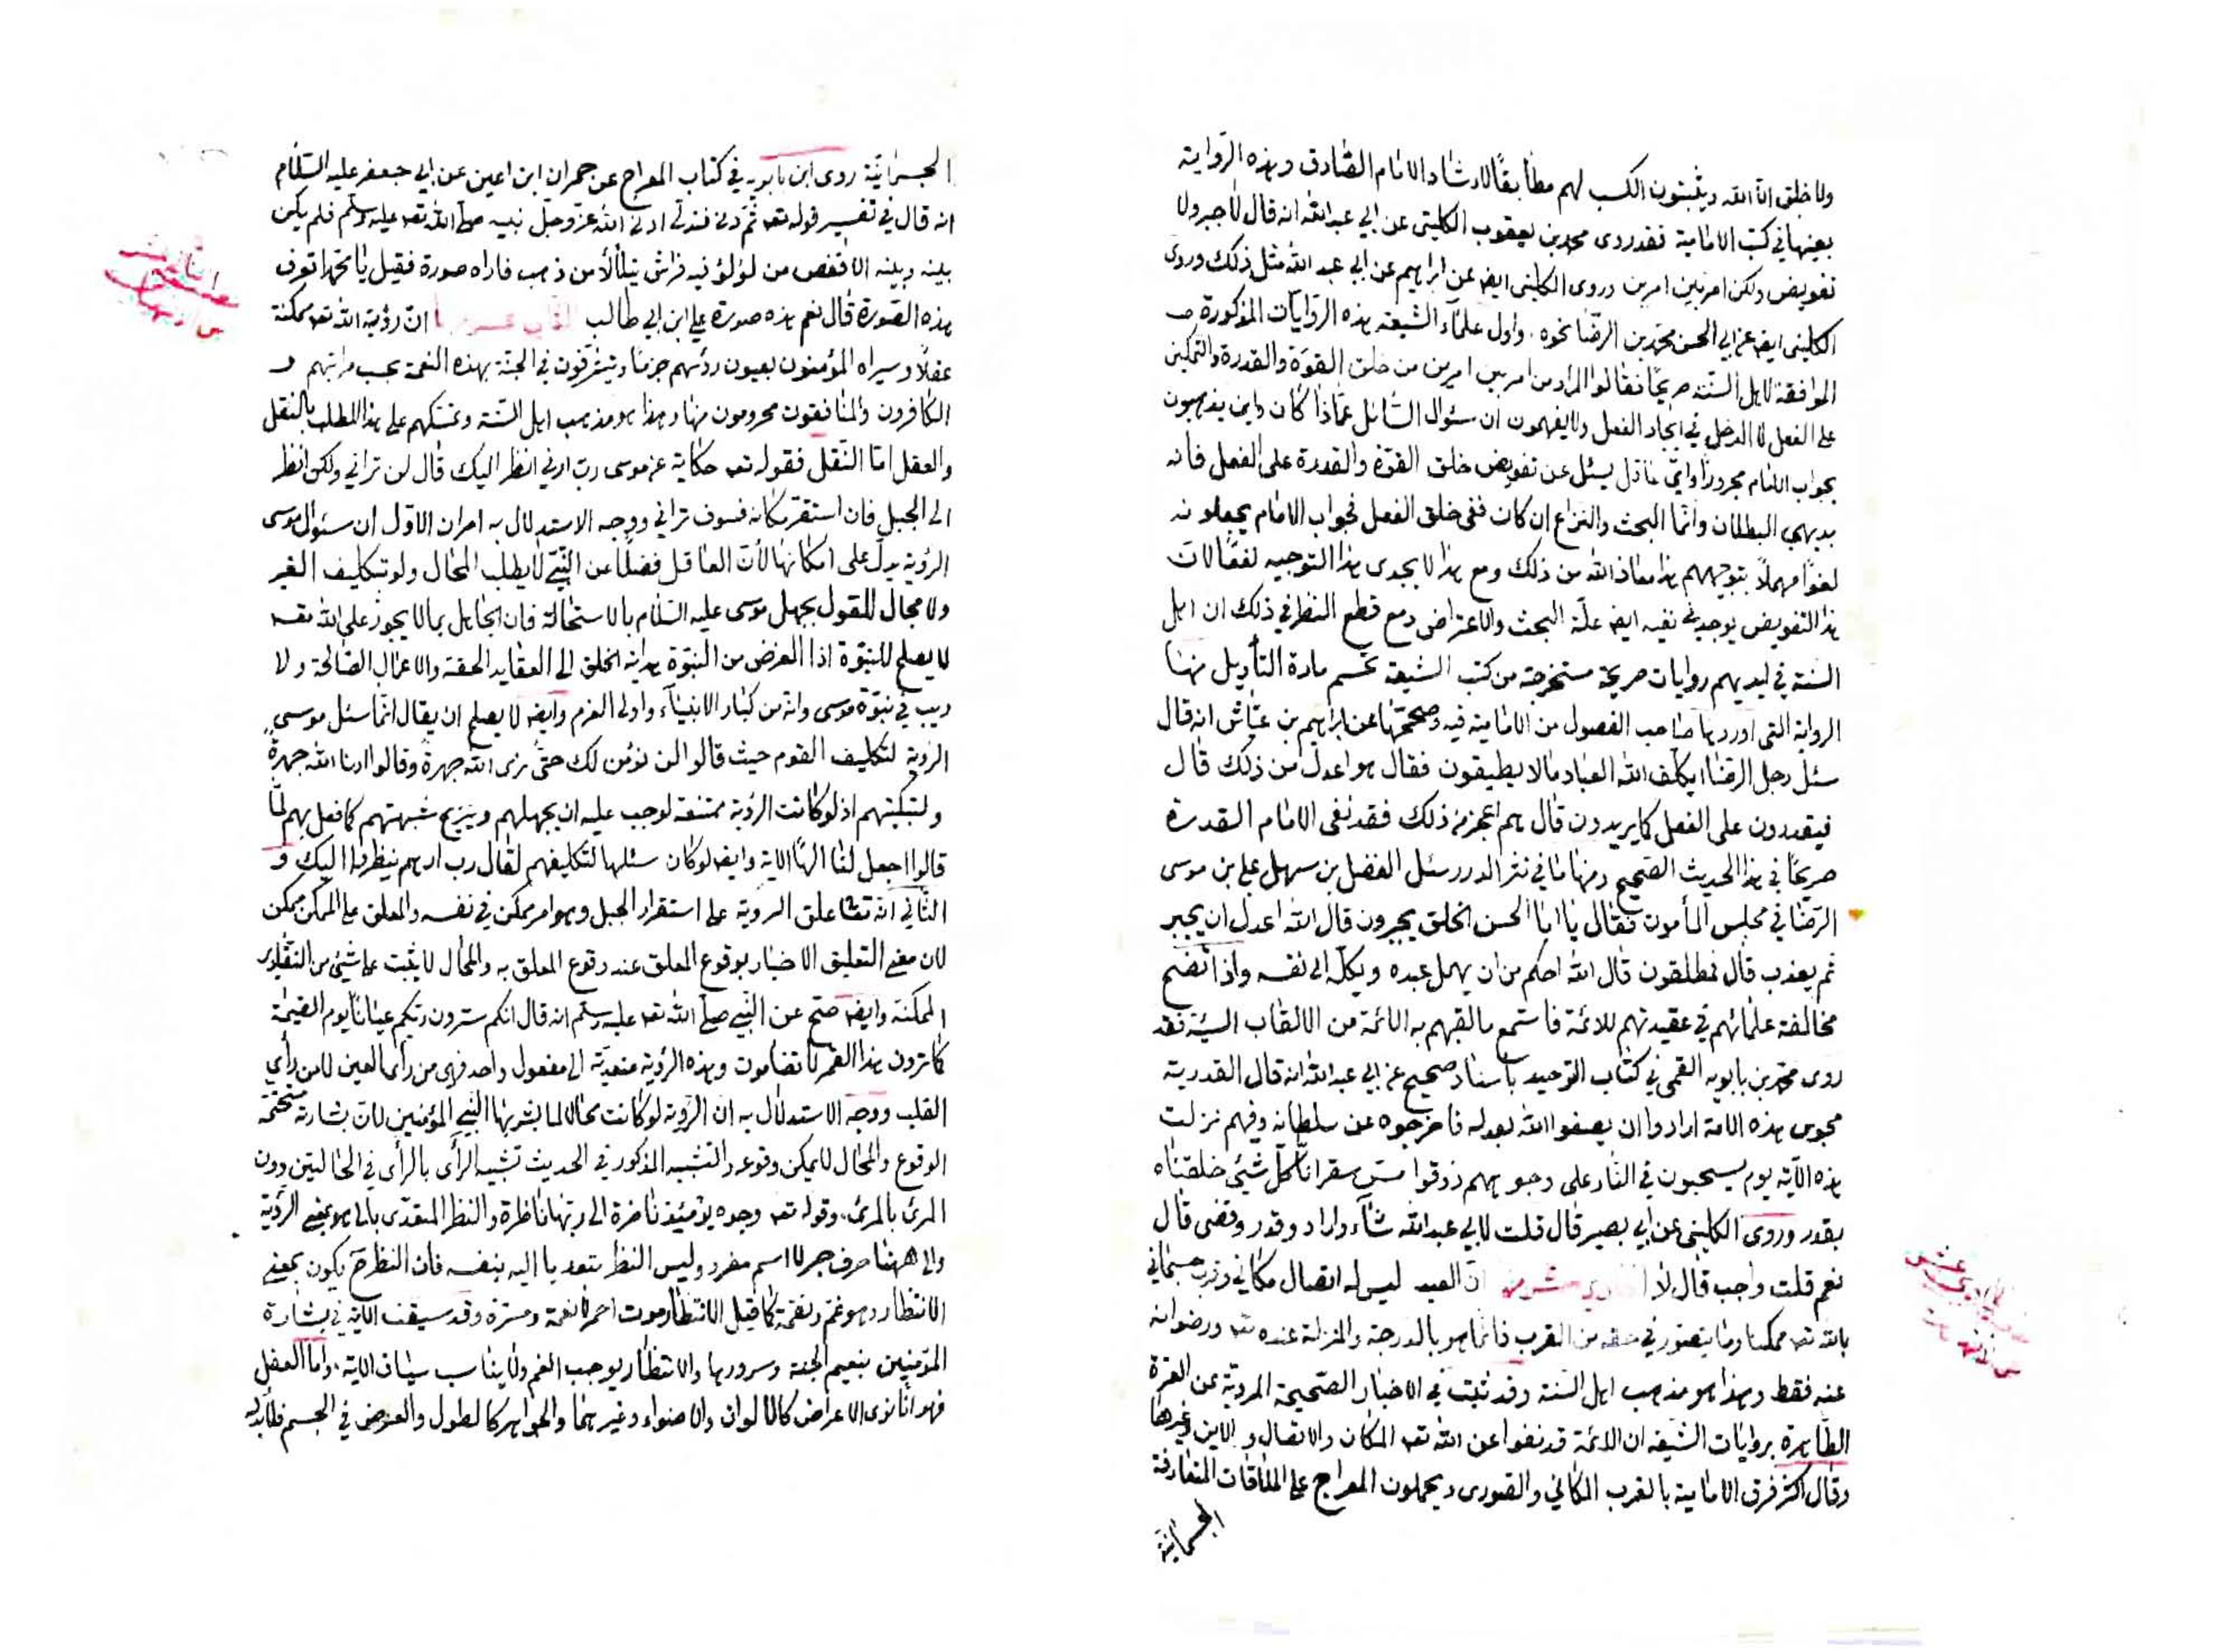 ولا خلق الا الله ويثبتون الكسب لهم مطابقا لارشاد الامام الصادق وبهذه الرواية
بعينها في كتب الامامية فقد روى محمد بن يعقوب الكليني عن ابي عبد الله انه قال لا جبر ولا
تفويض ولكن امر بين امرين وروى الكليني ايضا عن ابراهيم عن ابي عبد الله مثل ذلك وروى
الكليني ايضا عن ابي الحسن محمد بن الرضا نحوه واول علماء الشيعة هذه الروايات المذكورة
الموافقة لاهل السنة صريحا فقالوا المراد من امر بين امرين من خلق القوة والقدرة والتمكين
على الفعل لا الدخل في ايجاد الفعل ولا يفهمون ان سئوال السائل عماذا كان واين يذهبون
بجواب الامام مجرورا واي عاقل يسئل عن تفويض خلق القوة والقدرة على الفعل فانه
بديهي البطلان وانما البحث والنزاع ان كان ففي خلق الفعل فجواب الامام يجعلونه
لغوا مهملا بتوجيههم هذا معاذ الله من ذلك ومع هذا لا يجدى هذا التوجيه لفعالات
هذا التفويض يوجد في نفيه ايضا علة البحث والاعتراض ومع قطع النظر في ذلك ان اهل
السنة في ايديهم روايات صريحة مستخرجة من كتب الشيعة تحسم مادة التأويل منها
الرواية التي اوردها صاحب الفصول من الامامية فيه وصححها عن ابراهيم بن عياش انه قال
سئل رجل الرضا ايكلف الله العباد مالا يطيقون فقال هو اعدل من ذلك قال
فيقدرون على الفعل كما يريدون قال هم اعجز من ذلك فقد نفى الامام القدرة
صريحا في هذا الحديث الصحيح ومنها ما في نثر الدرر سئل الفضل بن سهل علي بن موسى
الرضا في مجلس المأمون فقال يا ابا الحسن الخلق يجبرون قال الله اعدل ان يجبر
ثم يعذب قال فمطلقون قال الله احكم من ان يهمل عبده ويكله الى نفسه واذا اتضح
مخالفة علمائهم في عقيدتهم للائمة فاستمع ما لقبهم به الائمة من الالقاب السيئة فقد
روى محمد بن بابويه القمي في كتاب التوحيد باسناد صحيح عن ابي عبد الله انه قال القدرية
مجوس هذه الامة ارادوا ان يصفوا الله بعدله فاخرجوه عن سلطانه وفيهم نزلت
هذه الآية يوم يسحبون في النار على وجوههم ذوقوا مس سقر انا كل شيئ خلقناه
بقدر وروى الكليني عن ابي بصير قال قلت لابي عبد الله شاء واراد وقدر وقضى قال
نعم قلت واحب قال لا ان العبد ليس له اتصال مكاني وقرب جسماني
بالله تعه ممكنا وما يتصور في حقه من القرب فانما هو بالدرجة والمنزلة عنده تعه ورضوانه
عنه فقط وهذا هو مذهب اهل السنة وقد ثبت في الاخبار الصحيحة المروية عن العترة
الطاهرة بروايات الشيعة ان الائمة قد نفوا عن الله تعه المكان والاتصال والاين وغيرها
وقال اكثر فرق الامامية بالقرب المكاني والصورى ويحملون المعراج على الملاقات المتعارفة
الجسمانية
الجسمانية روى ابن بابويه في كتاب المعراج عن حمران ابن اعين عن ابي جعفر عليه السلام
انه قال في تفسير قوله تعه ثم دنى فتدلى ادنى الله عز وجل نبيه صلى الله تعه عليه وسلم فلم يكن
بينه وبينه الا قفص من لؤلؤ فيه فراش يتلألأ من ذهب فاراه صورة فقيل يا محمد اتعرف
هذه الصورة قال نعم هذه صورة علي ابن ابي طالب ان رؤية الله تعه ممكنة
عقلا وسيراه المؤمنون بعيون رؤسهم جزما ويتشرفون في الجنة بهذه النعمة بحسب مراتبهم و
الكافرون والمنافقون محرومون منها وهذا هو مذهب اهل السنة وتمسكهم على هذا المطلب بالنقل
والعقل اما النقل فقوله تعه حكاية عن موسى رب ارني انظر اليك قال لن تراني ولكن انظر
الى الجبل فان استقر مكانه فسوف تراني ووجه الاستدلال به امران الاول ان سئوال موسى
الرؤية يدل على امكانها لأن العاقل فضلا عن النبي لا يطلب المحال ولو تبكليف الغير
ولا مجال للقول بجهل موسى عليه السلام بالاستحالة فان الجاهل بما لا يجوز على الله تعه
لا يصلح للنبوة اذا الغرض من النبوة هداية الخلق الى العقايد الحقة والاعمال الصالحة ولا
ريب في نبوة موسى وانه من كبار الانبياء واولى العزم وايضا لا يصلح ان يقال انما سئل موسى
الرؤية لتكليف القوم حيث قالوا لن نؤمن لك حتى نرى الله جهرة وقالوا ارنا الله جهرة
ولتبكيتهم اذ لو كانت الرؤية ممتنعة لوجب عليه ان يجهلهم ويزيح شبهتهم كما فعل بهم لما
قالوا اجعل لنا الها الاية وايضا لو كان سئلها لتكليفهم لقال رب ارهم ينظروا اليك و
الثاني انه تعا علق الروية على استقرار الجبل وهو امر ممكن في نفسه والمعلق على الممكن ممكن
لان معنى التعليق الاخبار بوقوع المعلق عند وقوع المعلق به والمحال لا يثبت على شئ من التقادير
الممكنة وايضا صح عن النبي صلى الله تعه عليه وسلم انه قال انكم سترون ربكم عيانا يوم القيمة
كما ترون هذا القمر لا تضامون وهذه الرؤية متعدية الى مفعول واحد فهي من رأى العين لا من رأى
القلب ووجه الاستدلال به ان الروية لو كانت محالا لما بشر بها النبي المؤمنين لان بشارته متحتمة
الوقوع والمحال لا يمكن وقوعه والتشبيه المذكور في الحديث تشبيه الرأى بالرأى في الحالتين دون
المرئ بالمرئ وقوله تعه وجوه يومئيذ ناضرة الى ربها ناظرة والنظر المتعدى بالى هو بمعنى الرؤية
والى ههنا حرف جر لا اسم مفرد وليس النظر متعديا اليه بنفسه فان النظر ح يكون بمعنى
الانتظار وهو غم ونقمة كما قيل الانتظار موت احمر لا نعمة ومسرة وقد سيقت الاية في بشارة
المؤمنين بنعيم الجنة وسرورها والانتظار يوجب الغم ولا يناسب سياق الاية واما العقل
فهو انا نرى الاعراض كالالوان والاضواء وغيرهما والجواهر كالطول والعرض في الجسم فلابد له